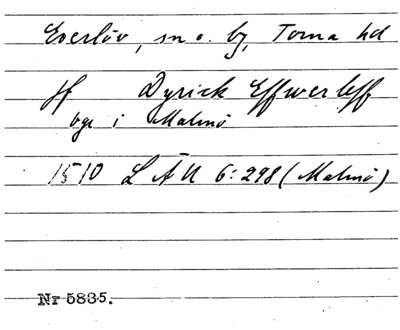 Everlöv, sn o. by, Torna hd
jf Dyrick Effwerleff
bgr i Malmö
1510 LÄU 6:298 (Malmö)
Nr 5835.